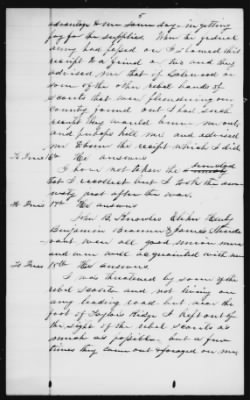 advantage to me some day in getting
pay for the supplies. When the federal
army had passed on I showed this
receipt to a friend or two and they
advised me that if Saberood or
some of the other rebel bands of
scouts that were plundering our
County found out I had such
receipt they would burn me out
and perhaps kill me and advised
me to burn the receipt which I did
To Inter 16th He answers
I have not taken the
that I recollect but I took the am
nesty just after the war.
To Inter 17th He answers
John B. Knowles
Benjamin Brannon & James Stur
vant were all good union men
and were well acquainted with me
To Inter 18th He answers
I was threatened by some of the
rebel scouts and not living on
any leading road but near the
foot of Taylors Ridge I kept out of
the sight of the rebel scouts as
much as possible but a few
times they came out & foraged on me